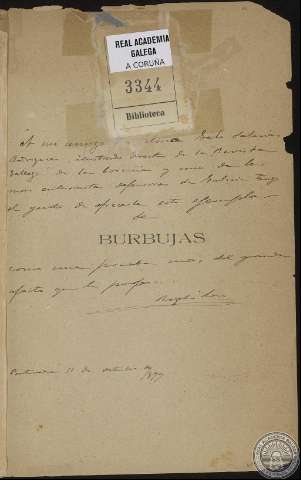 REAL ACADEMIA
GALEGA
A CORUÑA
3344
Biblioteca
A mi amigo Galo Salinas
Rodríguez, ilustrado director de la Revista
Gallega de la Coruña y uno de los
más entusiastas defensores de Galicia tengo
el gusto de ofrecerle este ejemplar
de
BURBUJAS
como una prueba más del grande
afecto que le profesa
Pontevedra 11 de octubre de
1897